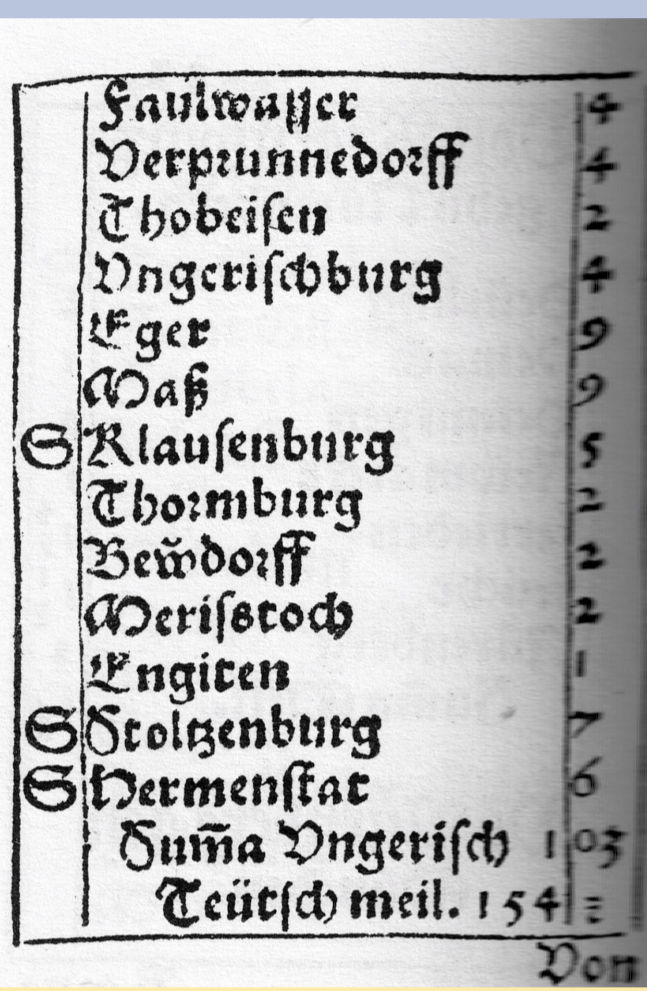 Faulwasser 4
Verprunnedorff 4
Thobeisen 2
Vngerischburg 4
Eger 9
Maß 9
S Klausenburg 5
Thormburg 2
Bew̃dorff 2
Merisstoch 2
Engiten 1
S Stoltzenburg 7
S Hermenstat 6
Sum̃a Vngerisch 103
Teütsch meil. 154
Von